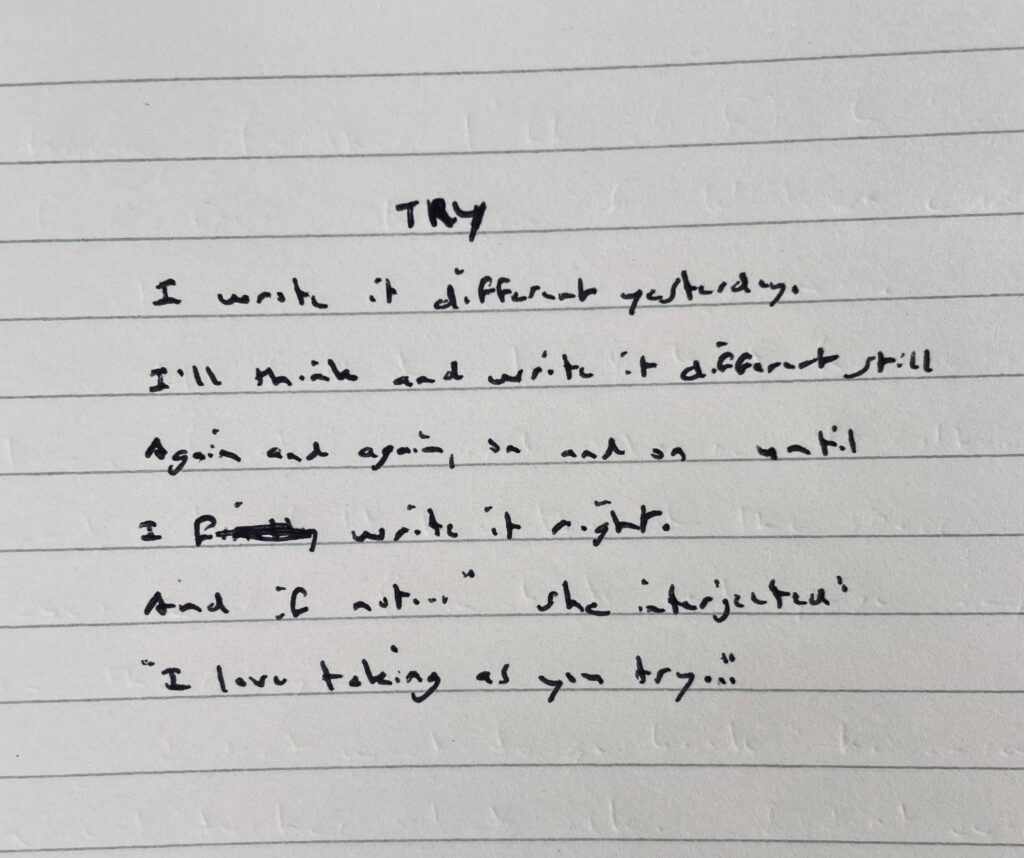 TRY
I wrote it different yesterday.
I'll think and write it different still
Again and again, on and on until
I write it right.
And if not..." she interjected'
"I love taking as you try..."